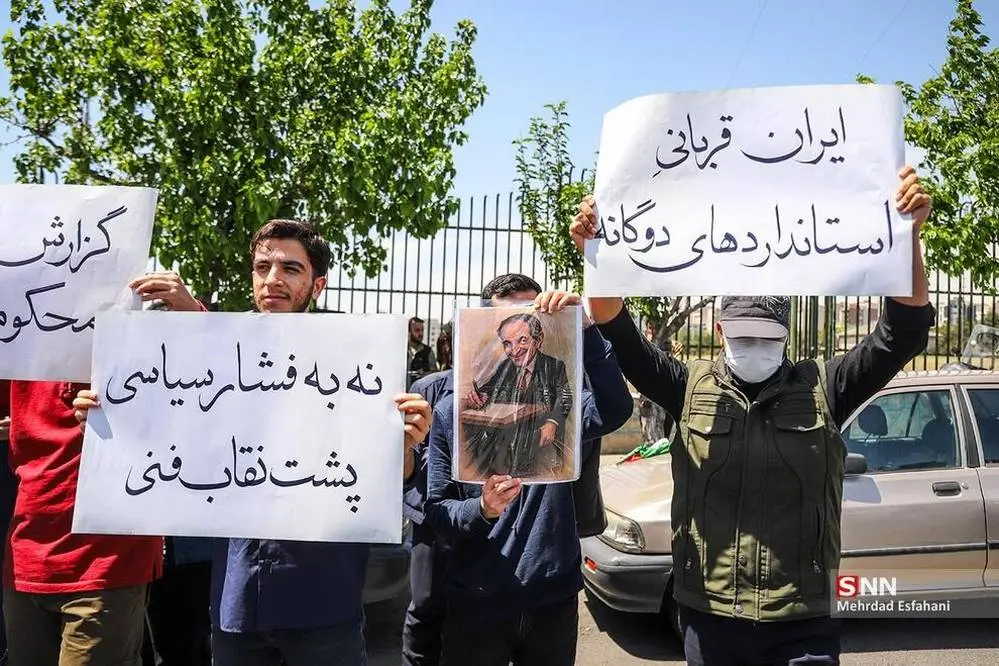 ایران قربانیِ
استانداردهای دوگانه
نه به فشار سیاسی
پشت نقاب فنی
گزارش
محکوم
SNN
Mehrdad Esfahani